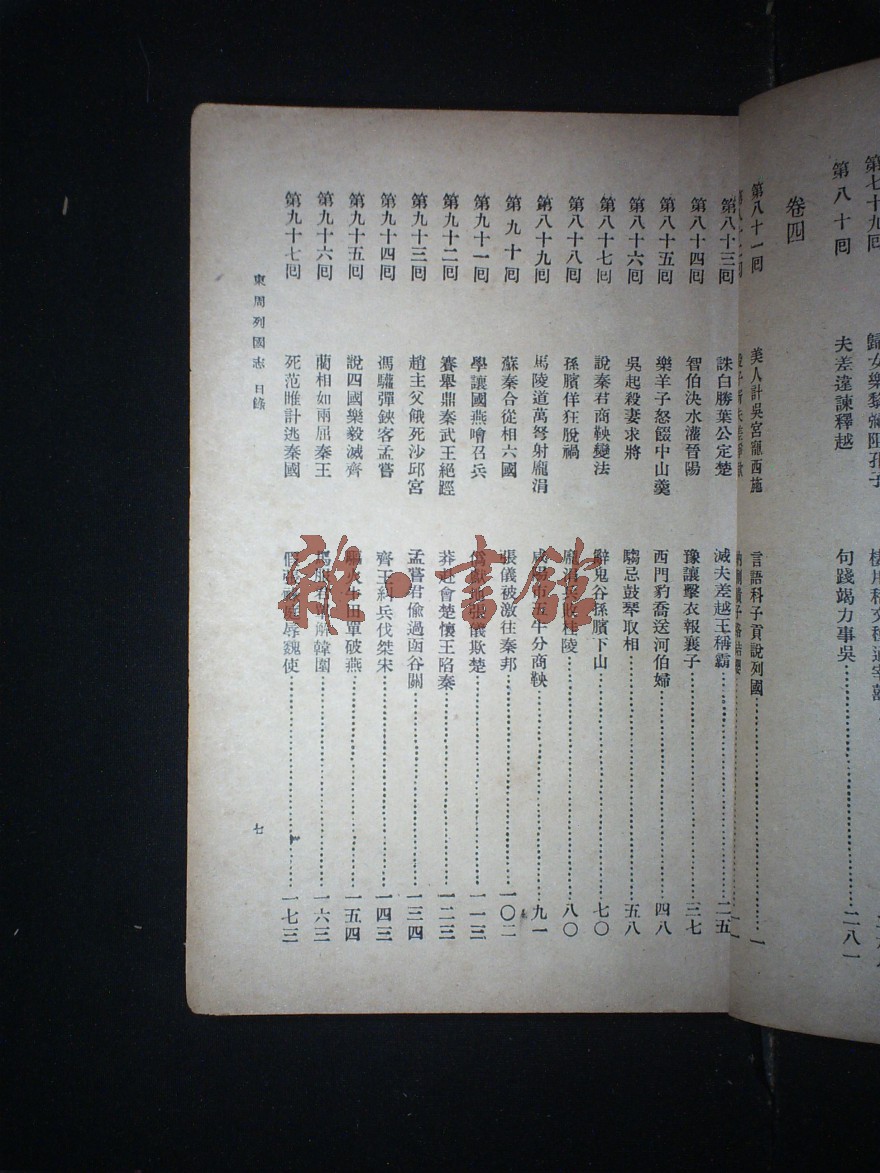 第七十九回 歸女樂黎彌阻孔子
第八十回 夫差違諫釋越 句踐竭力事吳 二八一
卷四
第八十一回 美人計吳宮寵西施 言語科子貢說列國 一
第八十三回 誅白勝葉公定楚 滅夫差越王稱霸 二五
第八十四回 智伯決水灌晉陽 豫讓擊衣報襄子 三七
第八十五回 樂羊子怒餟中山羹 西門豹喬送河伯婦 四八
第八十六回 吳起殺妻求將 騶忌鼓琴取相 五八
第八十七回 說秦君商鞅變法 辭鬼谷孫臏下山 七〇
第八十八回 孫臏佯狂脫禍 龐涓兵敗桂陵 八〇
第八十九回 馬陵道萬弩射龐涓 咸陽市五牛分商鞅 九一
第九十回 蘇秦合從相六國 張儀被激往秦邦 一〇二
第九一回 學讓國燕噲召兵 偽獻地張儀欺楚 一一三
第九十二回 賽舉鼎秦武王絕脛 莽赴會楚懷王陷秦 一二三
第九十三回 趙主父餓死沙邱宮 孟嘗君偷過函谷關 一三四
第九十四回 馮驩彈鋏客孟嘗 齊王糾兵伐桀宋 一四三
第九十五回 說四國樂毅滅齊 驅火牛田單破燕 一五四
第九十六回 藺相如兩屈秦王 馬服君單解韓圍 一六三
第九十七回 死范雎計逃秦國 假張祿廷辱魏使 一七三
東周列國志 目錄
七
雜·書館